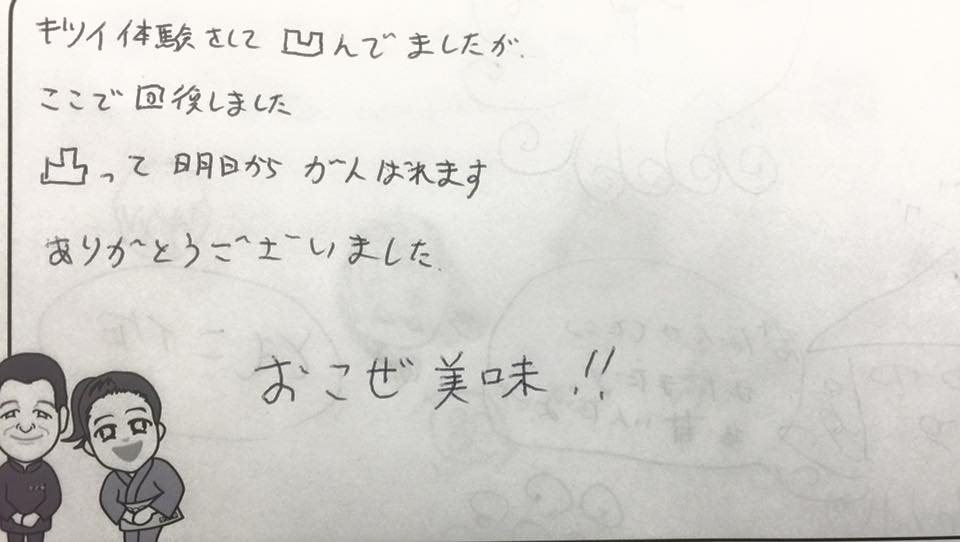 キツイ体験をして凹んでましたが、
ここで回復しました
凸って明日からがんばれます
ありがとうございました。
おこぜ美味!!